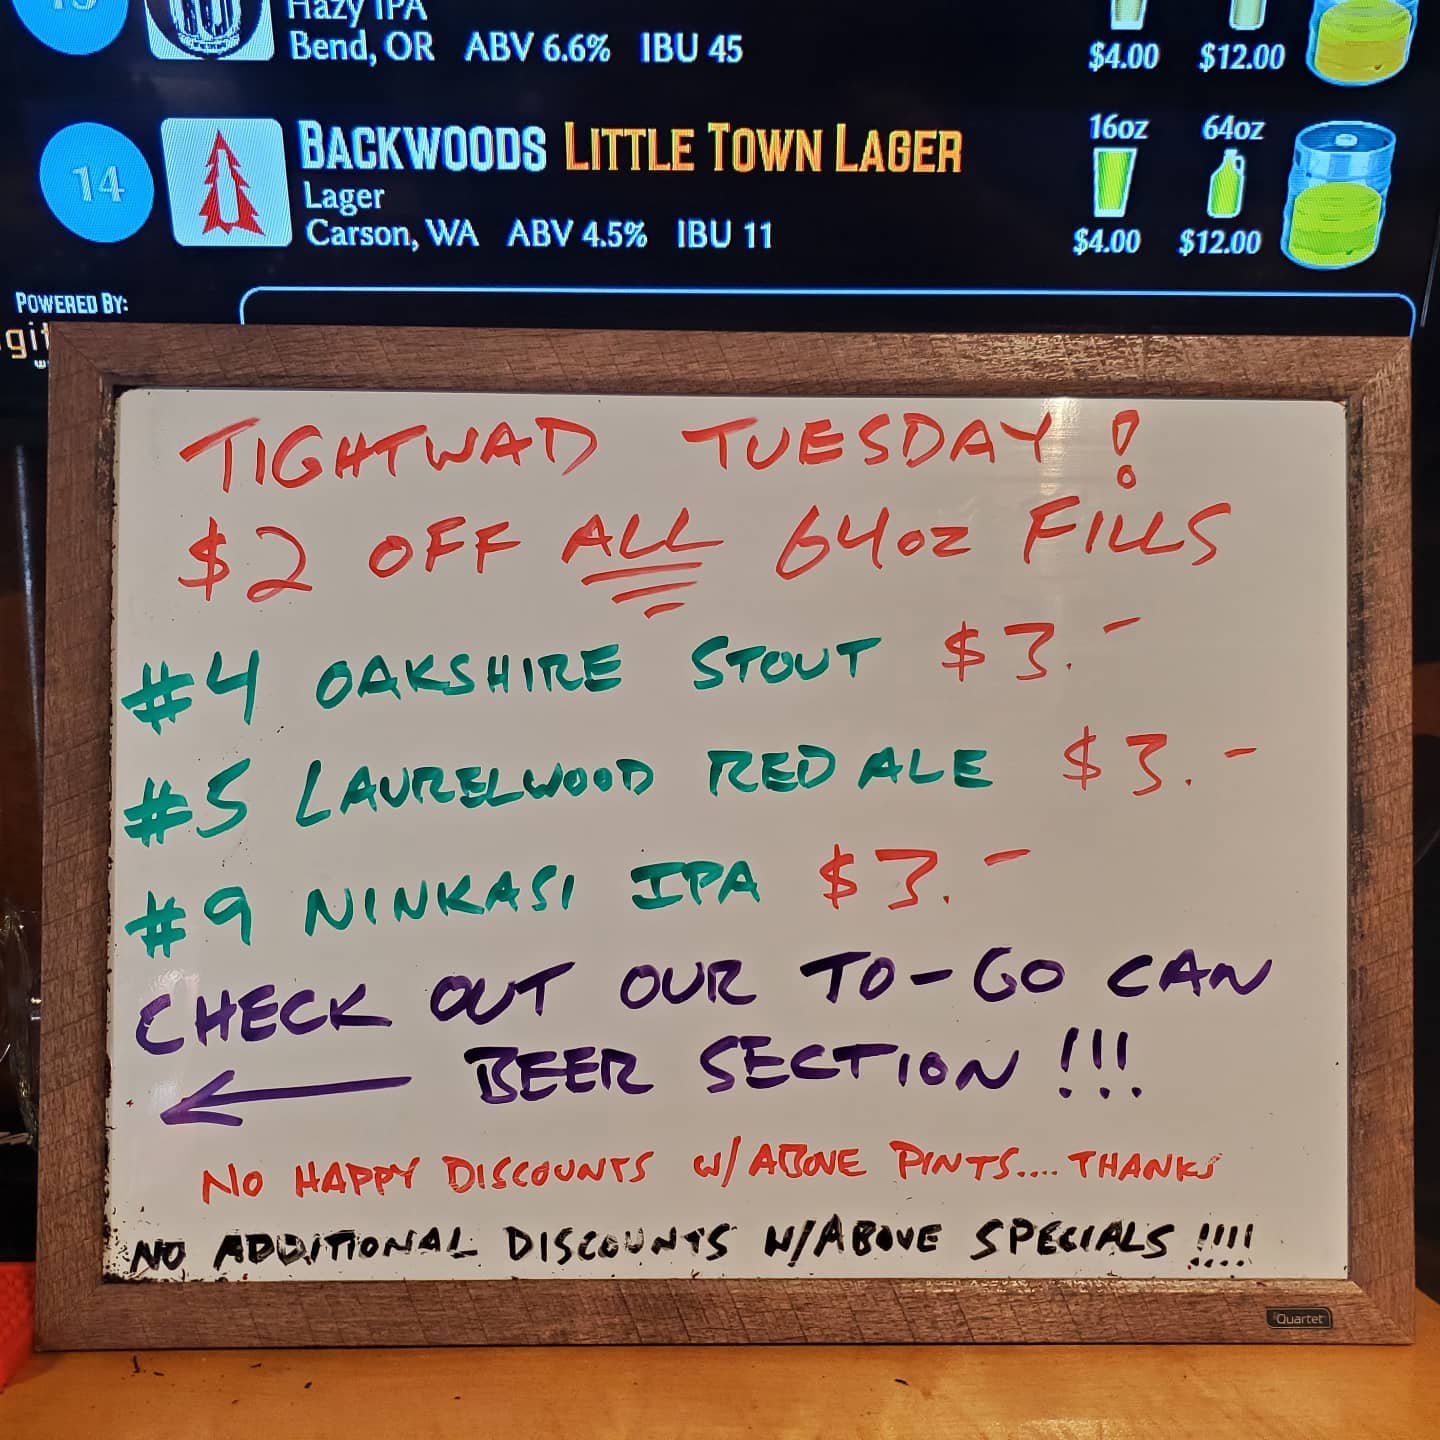 Hazy IPA
Bend, OR ABV 6.6% IBU 45
$4.00 $12.00
14
BACKWOODS LITTLE TOWN LAGER
Lager
Carson, WA ABV 4.5% IBU 11
16oz 64oz
$4.00 $12.00
POWERED BY:
TIGHTWAD TUESDAY!
$2 OFF ALL 64oz FILLS
#4 OAKSHIRE STOUT $3.-
#5 LAURELWOOD RED ALE $3.-
#9 NINKASI IPA $3.-
CHECK OUT OUR TO-GO CAN
BEER SECTION !!!
NO HAPPY DISCOUNTS W/ABOVE PINTS.... THANKS
NO ADDITIONAL DISCOUNTS W/ABOVE SPECIALS !!!!
Quartet